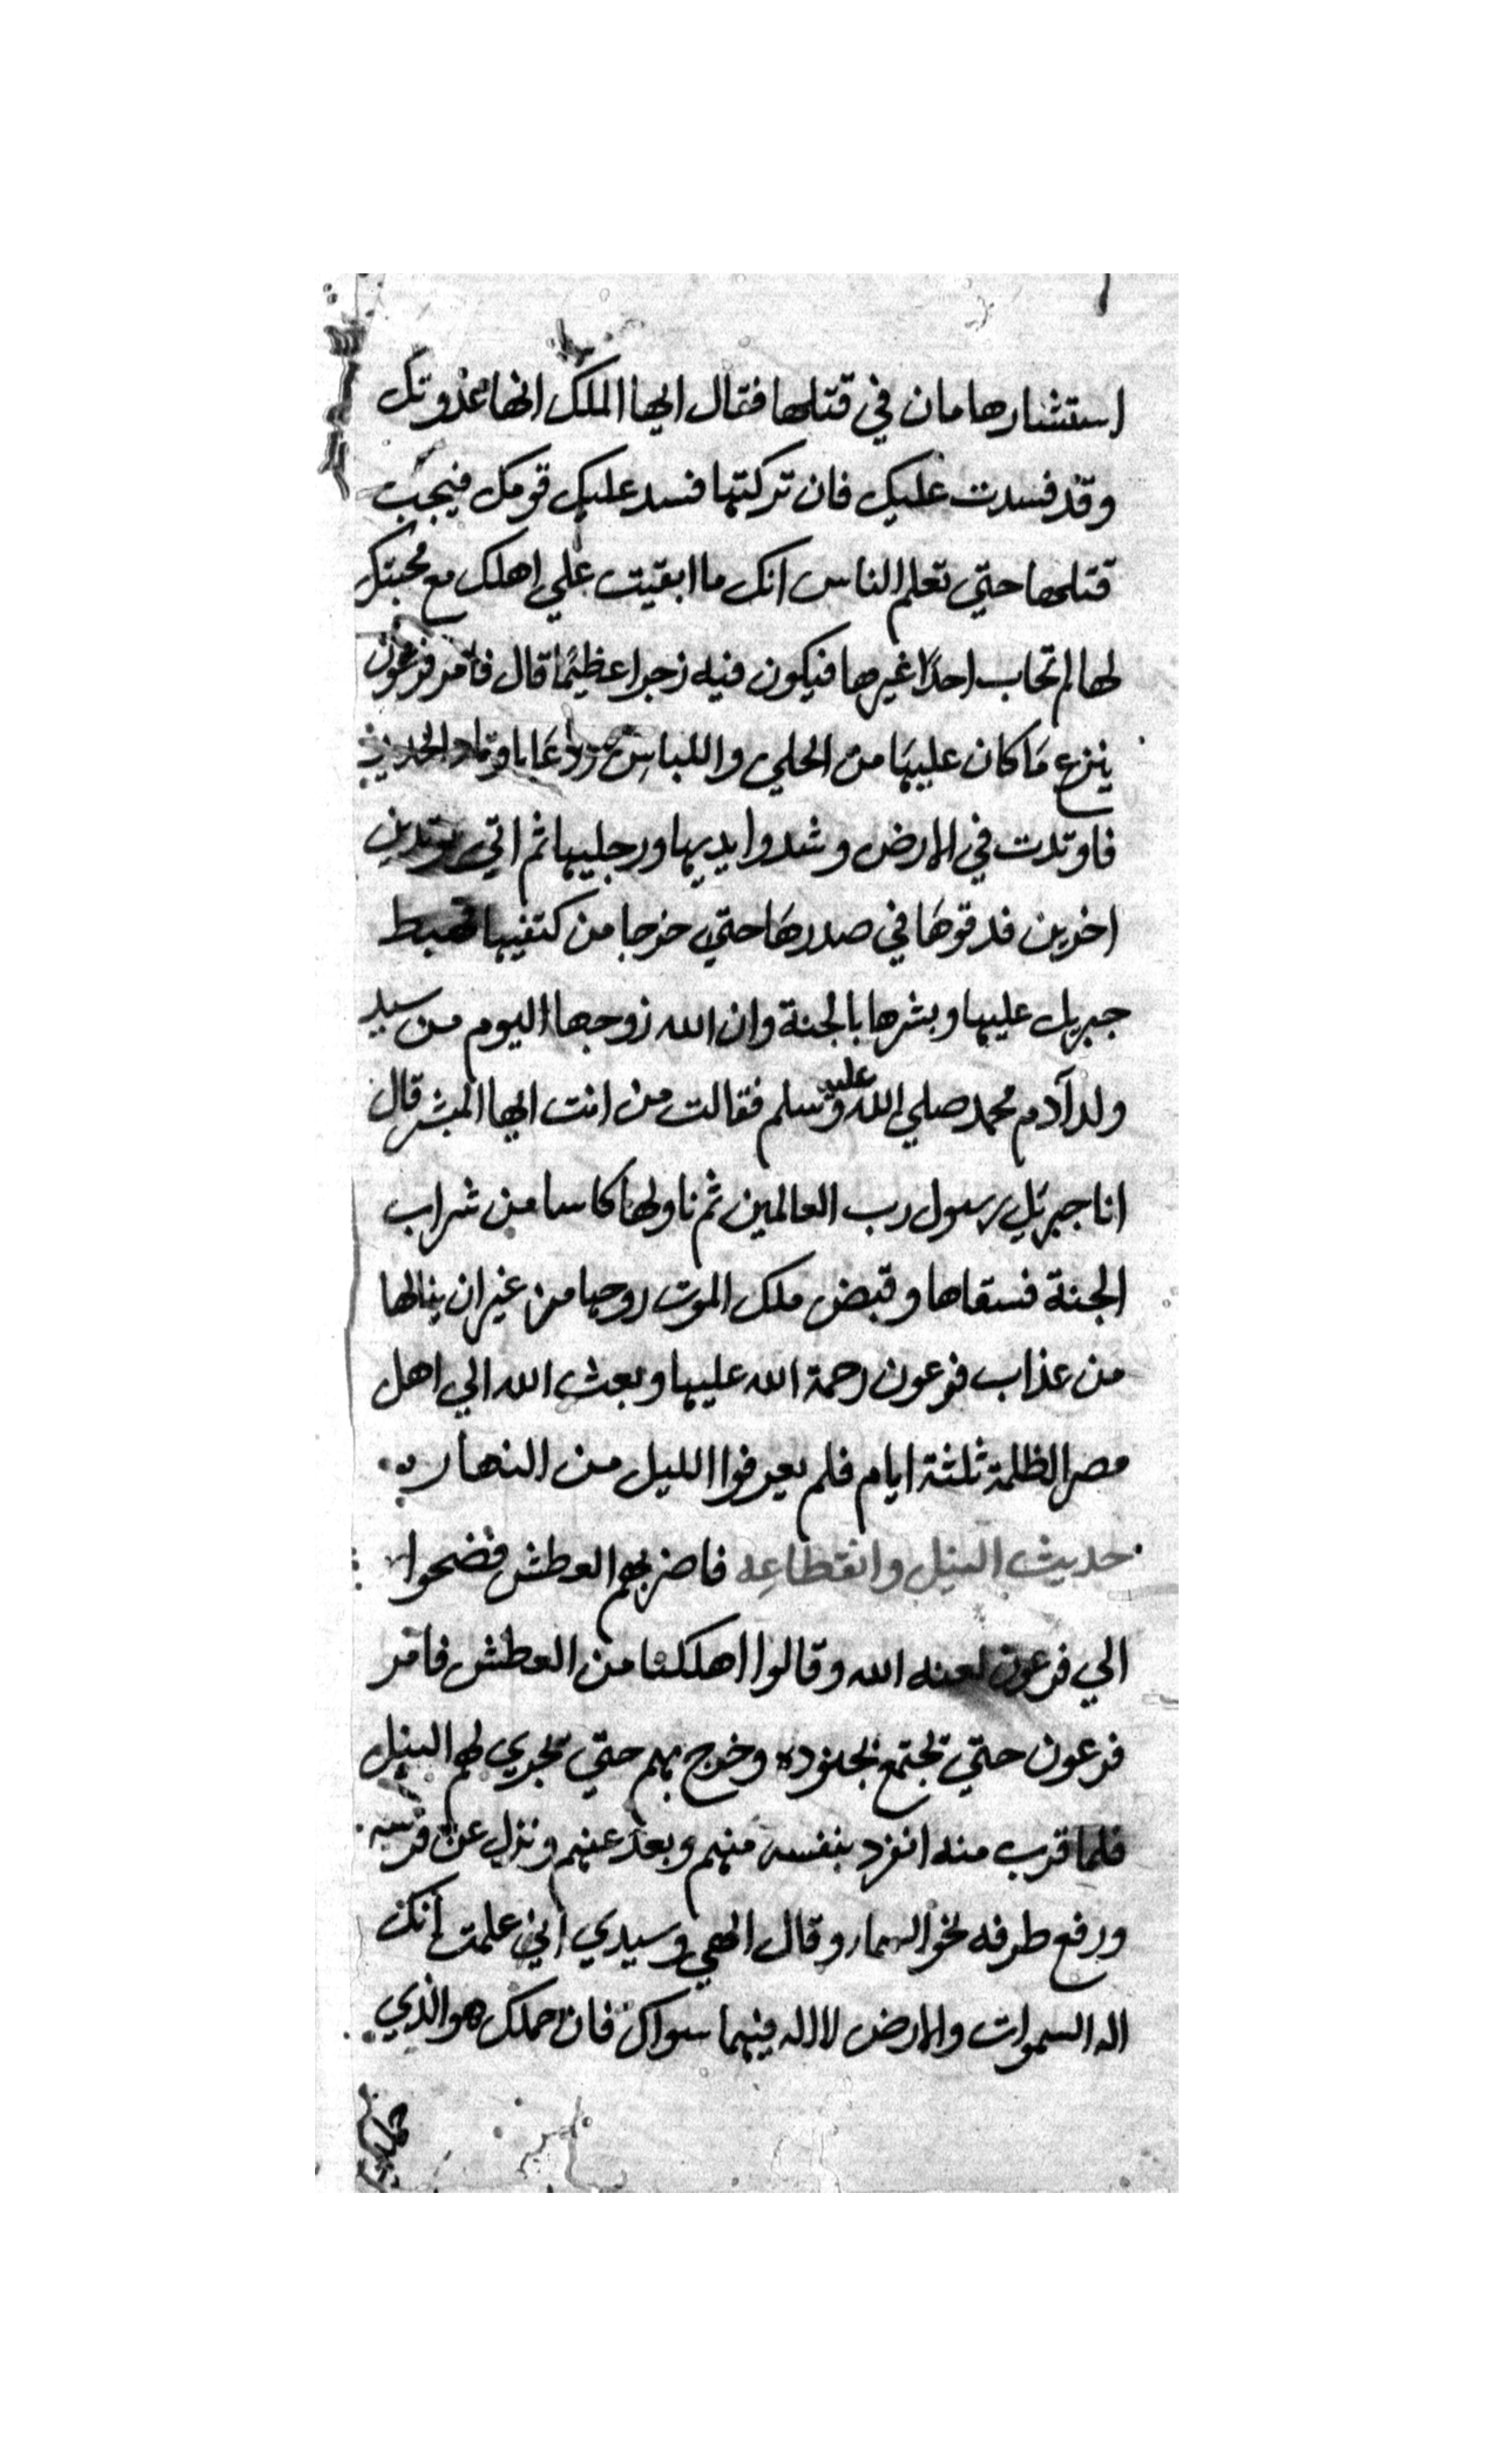 استشار هامان في قتلها فقال ايها الملك انها مخذوتك
وقد فسدت عليك فان تركتها فسد عليك قومك فيجب
قتلها حتي تعلم الناس انك ما ابقيت علي اهلك مع محبتك
لها لم تحاب احدًا غيرها فيكون فيه زجرا عظيمًا قال فأمر فرعون
ينزع مَا كان عليهَا من الحلي واللباس ودعَا باوتاد الحديد
فاوتدت في الارض وشدوا يديها ورجليها ثم اتي بوتدين
اخرين فدقوهَا في صدرهَا حتي خرجا من كتفيها فهبط
جبريل عليها وبشرها بالجنة وان الله زوجها اليوم من سيد
ولد آدم محمد صلي الله عليه وسلم فقالت من انت ايها المبشر قال
انا جبريل رسول رب العالمين ثم ناولها كاسا من شراب
الجنة فسقاها وقبض ملك الموت روحها من غير ان ينالها
من عذاب فرعون رحمة الله عليها وبعث الله الي اهل
مصر الظلمة ثلثة ايام فلم يعرفوا الليل من النهار
حديث النيل وانقطاعه فاضر بهم العطش فضجوا
الي فرعون لعنه الله وقالوا اهلكنا من العطش فامر
فرعون حتي تجتمع بجنوده وخرج بهم حتي تجري لهم النيل
فلما قرب منه انفرد بنفسه منهم وبعد عنهم ونزل عن فرسه
ورفع طرفه نحو السماء وقال الهي وسيدي اني علمت انك
اله السموات والارض لا اله فيهما سواك فان حملك هو الذي